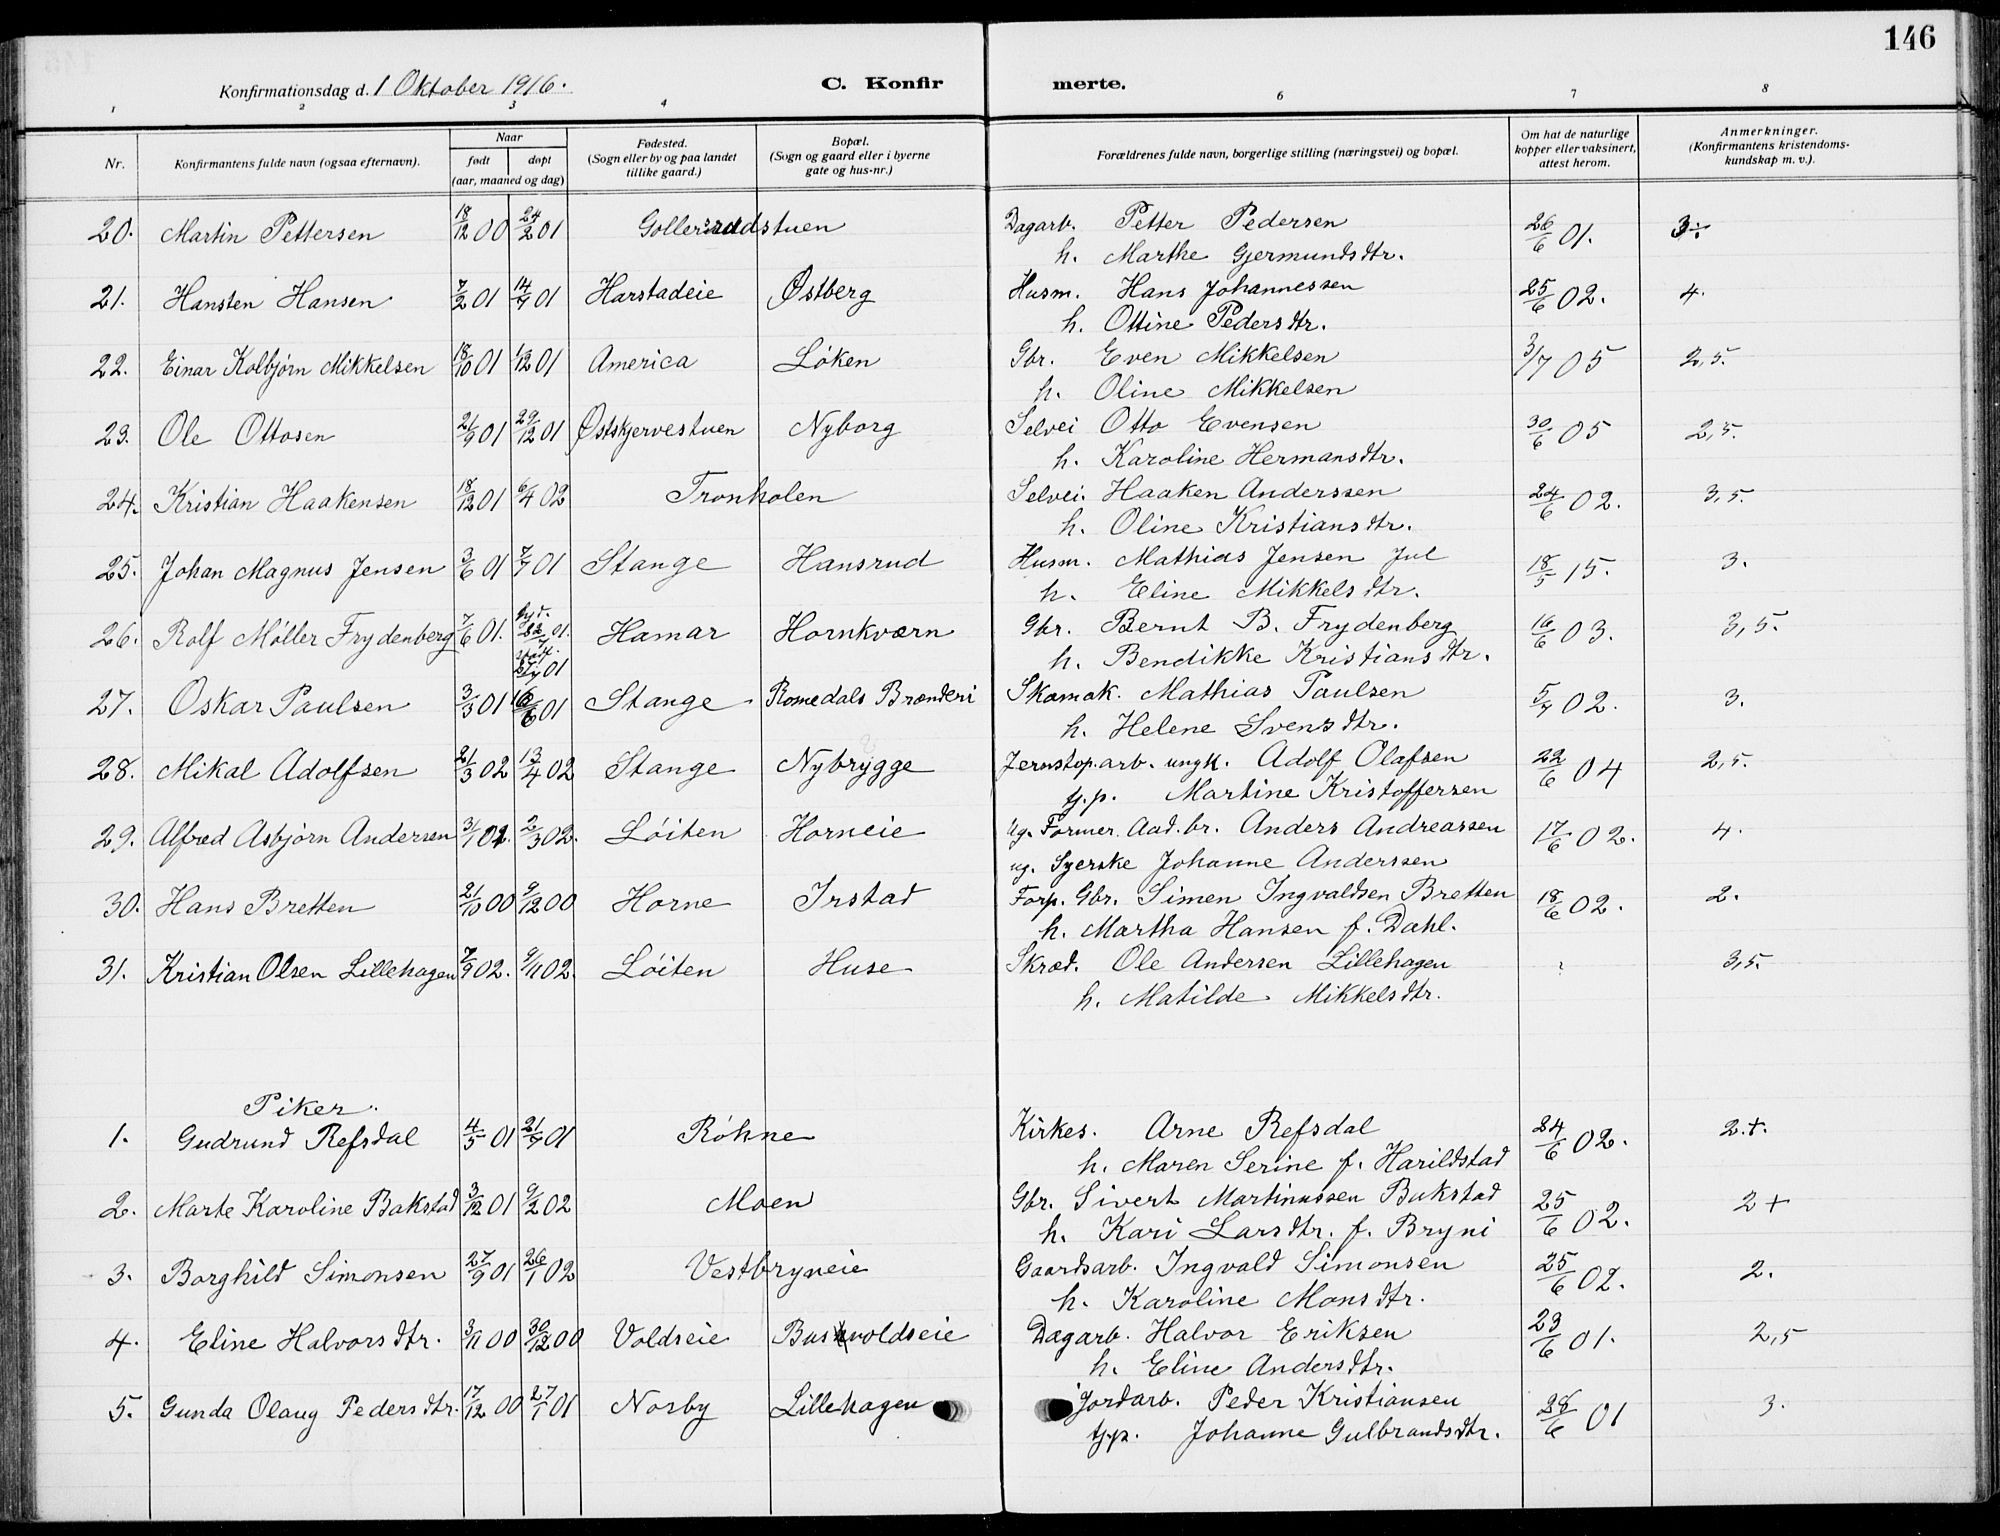 146
Konfirmationsdag d. 1 Oktober 1916.
C. Konfir merte.
1 2 3 4 6 7 8
Nr. Konfirmantens fulde navn (ogsaa efternavn). Naar født døpt (aar, maaned og dag) Fødested. (Sogn eller by og paa landet tillike gaard.) Bopæl. (Sogn og gaard eller i byerne gate og hus-nr.) Forældrenes fulde navn, borgerlige stilling (næringsvei) og bopæl. Om hat de naturlige kopper eller vaksinert, attest herom. Anmerkninger. (Konfirmantens kristendoms-kundskap m. v.).
20. Martin Pettersen 18/12 00 24/2 01 Gollerrudstuen Dagarb. Petter Pedersen 26/6 01. 3÷
h. Marthe Gjermundsdtr.
21. Hansten Hansen 7/2 01 14/7 01 Harstadeie Østberg Husm. Hans Johannessen 25/6 02. 4.
h. Ottine Pedersdtr.
22. Einar Kolbjørn Mikkelsen 18/10 01 1/12 01 America Løken Gbr. Even Mikkelsen 3/7 05 2,5.
h. Oline Mikkelsen
23. Ole Ottosen 21/9 01 29/12 01 Østskjervestuen Nyborg Selvei Otto Evensen 30/6 05 2,5.
h. Karoline Hermansdtr.
24. Kristian Haakensen 18/12 01 6/4 02 Tronholen Selvei. Haaken Anderssen 24/6 02. 3,5.
h. Oline Kristiansdtr.
25. Johan Magnus Jensen 3/6 01 7/7 01 Stange Hansrud Husm. Mathias Jensen Jul 18/5 15. 3.
h. Eline Mikkelsdtr.
26. Rolf Møller Frydenberg 7/6 01. 01. Hamar Hornkværn Gbr. Bernt B. Frydenberg 16/6 03. 3,5.
01 h. Bendikke Kristiansdtr.
27. Oskar Paulsen 3/3 01 16/6 01 Stange Romedals Brænderi Skomak. Mathias Paulsen 5/7 02. 3.
h. Helene Svensdtr.
28. Mikal Adolfsen 21/3 02 13/4 02 Stange Nybrygge Jernstøp.arb. ungk. Adolf Olafsen 22/6 04 2,5.
tj.p. Martine Kristoffersen
29. Alfred Asbjørn Andersen 3/1 02. 2/3 02. Løiten Horneie Ug. Former Aad. br. Anders Andreassen 17/6 02. 4.
ug. Syerske Johanne Anderssen
30. Hans Bretten 21/10 00 9/12 00 Horne Irstad Forp. Gbr. Simen Ingvaldsen Bretten 18/6 02. 2.
h. Martha Hansen f. Dahl.
31. Kristian Olsen Lillehagen 7/9 02. 9/11 02. Løiten Huse Skræd. Ole Andersen Lillehagen ? 3,5.
h. Matilde Mikkelsdtr.
Piker.
1. Gudrund Refsdal 4/5 01 21/7 01 Røhne Kirkes. Arne Refsdal 24/6 02. 2+.
h. Maren Serine f. Harildstad
2. Marte Karoline Bakstad 3/12 01 9/2 02 Moen Gbr. Sivert Martinussen Bakstad 25/6 02. 2+
h. Kari Larsdtr. f. Bryni
3. Borghild Simonsen 27/9 01 26/1 02 Vestbryneie Gaardsarb. Ingvald Simonsen 25/6 02. 2.
h. Karoline Monsdtr.
4. Eline Halvorsdtr. 3/11 00 30/12 00 Voldseie Buskvoldseie Dagarb. Halvor Eriksen 23/6 01. 2,5
h. Eline Andersdtr.
5. Gunda Olaug Pedersdtr. 17/12 00 27/1 01 Norby Lillehagen Jordarb. Peder Kristiansen 28/6 01 3.
tj.p. Johanne Gulbrandsdtr.